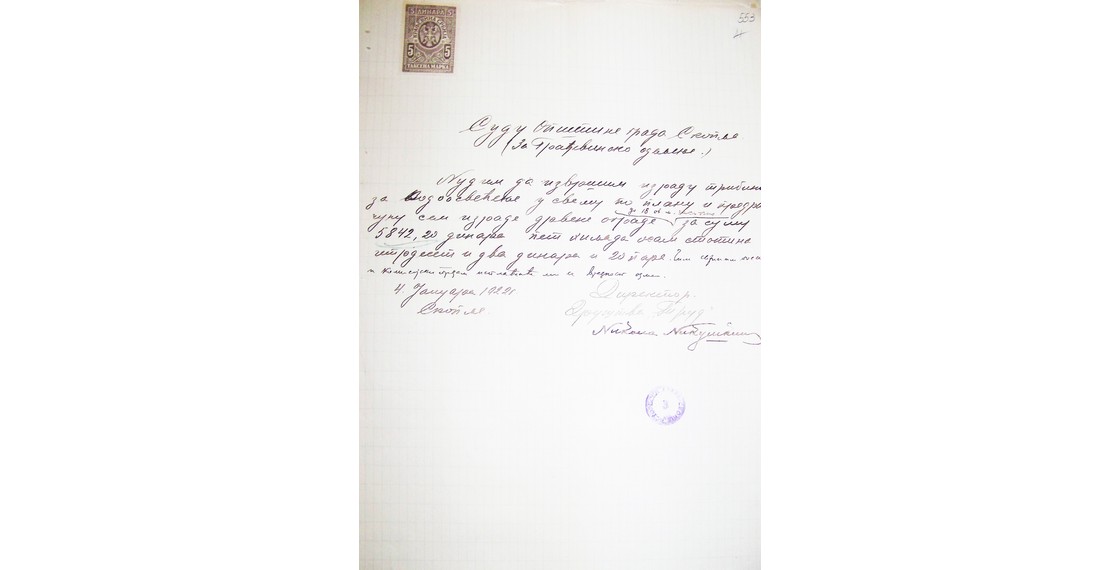 5 ДИНАРА 5
5 5
ТАКСЕНА МАРКА
553
4
Суду Општине града Скопље
(За Грађевинско одељење.)
Нудим да извршим израду трибина
за Водоосвећење у свему по плану и предра
чуну сем израде дрвене ограде за суму
до 18 ов. м.
5842,20 динара пет хиљада осам стотине
четрдесет и два динара и 20 паре.
4. Јануара 1922г
Скопље
Директор.
Друштва "Труд"
Никола
3